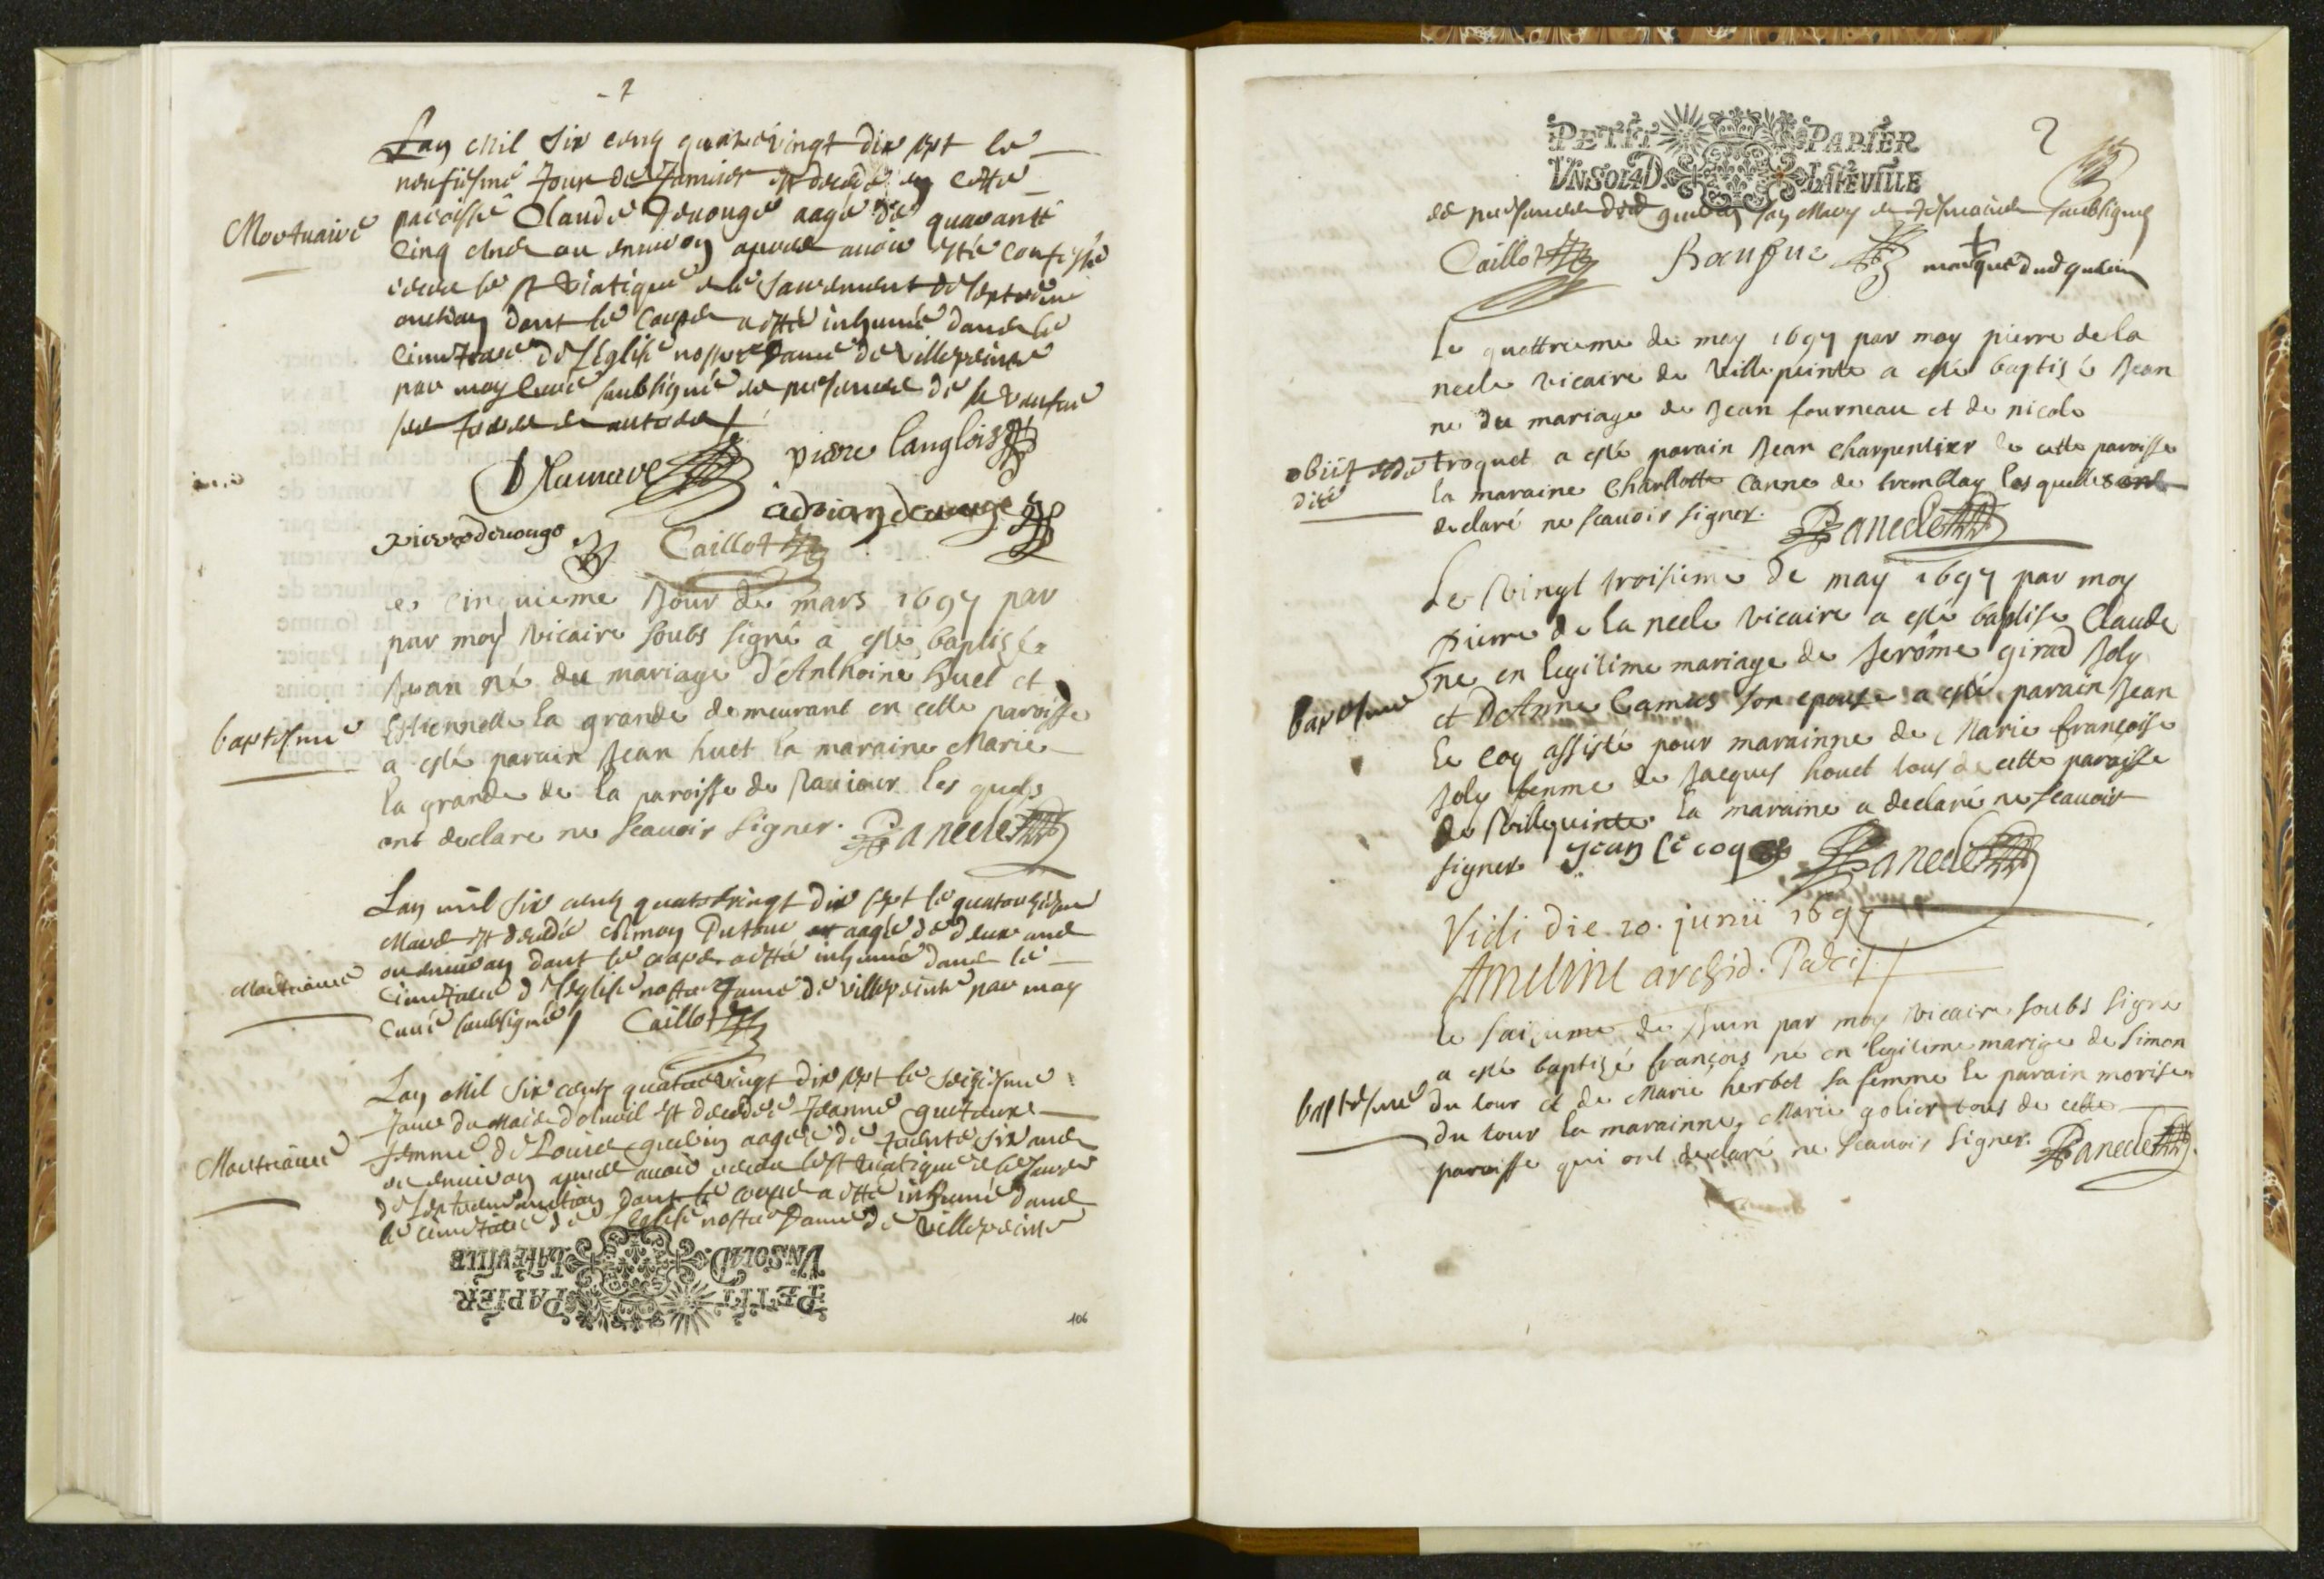 Lan Mil Six cens quatrevingt dix sept le
neufiesme Jour de Janvier est decedé en cette
Mortuaire
paroisse Claude Devouge aagé de quarante
Cinq ans ou environ apres avoir esté confessé
receu le st viatique et le sacrement de lextreme
onction dont le corps a esté inhumé dans le
Cimetiere de L'église nostre Dame de Villepeinte
par moy Curé soubsigné es presence de
ses freres et autres
pierre langlois
adrian devouge
pierre devouge
Caillot
cinquieme Jour de mars 1697 par
par moy vicaire soubs signé a esté baptisé
Jean né du mariage d'Anthoine huet et
baptesme
Estiennette la grande demeurant en cette paroisse
a esté parain Jean huet la maraine Marie
la grande de la paroisse de les quels
ont declare ne scavoir signer. P. Lanecle
Lan mil six cens quatrevingt dix sept le quatorziesme
Mars est decedé Simon Dutour aagé de deux ans
ou environ dont le corps a esté inhumé dans le
Mortuaire
Cimetiere de l'église nostre Dame de villepeinte par moy
Curé soubsigné Caillot
Lan Mil Six cens quatrevingt dix sept le seiziesme
Jour du Mois d'Avril est decedée Jeanne
Mortuaire
femme de Louis guerin aagée de trente six ans
ou environ apres avoir receu le st viatique et le sacrement
de lextreme onction dont le corps a esté inhumé dans
le cimetiere de l'Eglise nostre Dame de villepeinte
VN SOL 4 D. LA FEVILLE
PETIT PAPIER
106
2
PETIT PAPIER
VN SOL 4 D. LA FEVILLE
es presence dud guerin son Mary et tesmoins soubsignes
Caillot marque dud guerin
Le quattrieme de may 1697 par moy pierre de la
necle vicaire de Villepeinte a esté baptisé Jean
né du mariage de Jean fourneau et de nicole
obiit
troquet a esté parain Jean Charpentier de cette paroisse
die
la maraine Charllotte Canne de tremblay les quelles ont
declaré ne scavoir signer. P. Lanecle
Le vingt troisieme de may 1697 par moy
pierre de la necle vicaire a esté baptise Claude
né en legitime mariage de Jerôme girad Joly
baptesme
et D'Anne Camus son epouse a esté parain Jean
le coq assisté pour marainne de Marie françoise
Joly femme de Jacques houet tous de cette paroisse
de Villepinte. la maraine a declaré ne scavoir
signer Jean le coq P. Lanecle
Vidi die 20. junii 1697
Ameline archid. Paris.
le saizieme de Juin par moy vicaire soubs signé
a esté baptizé françois né en legitime marige de Simon
baptesme
du tour et de Marie herbet sa femme le parain morise
du tour la marainne Marie golier tous de cette
paroisse qui ont declaré ne scavoir signer. P. Lanecle